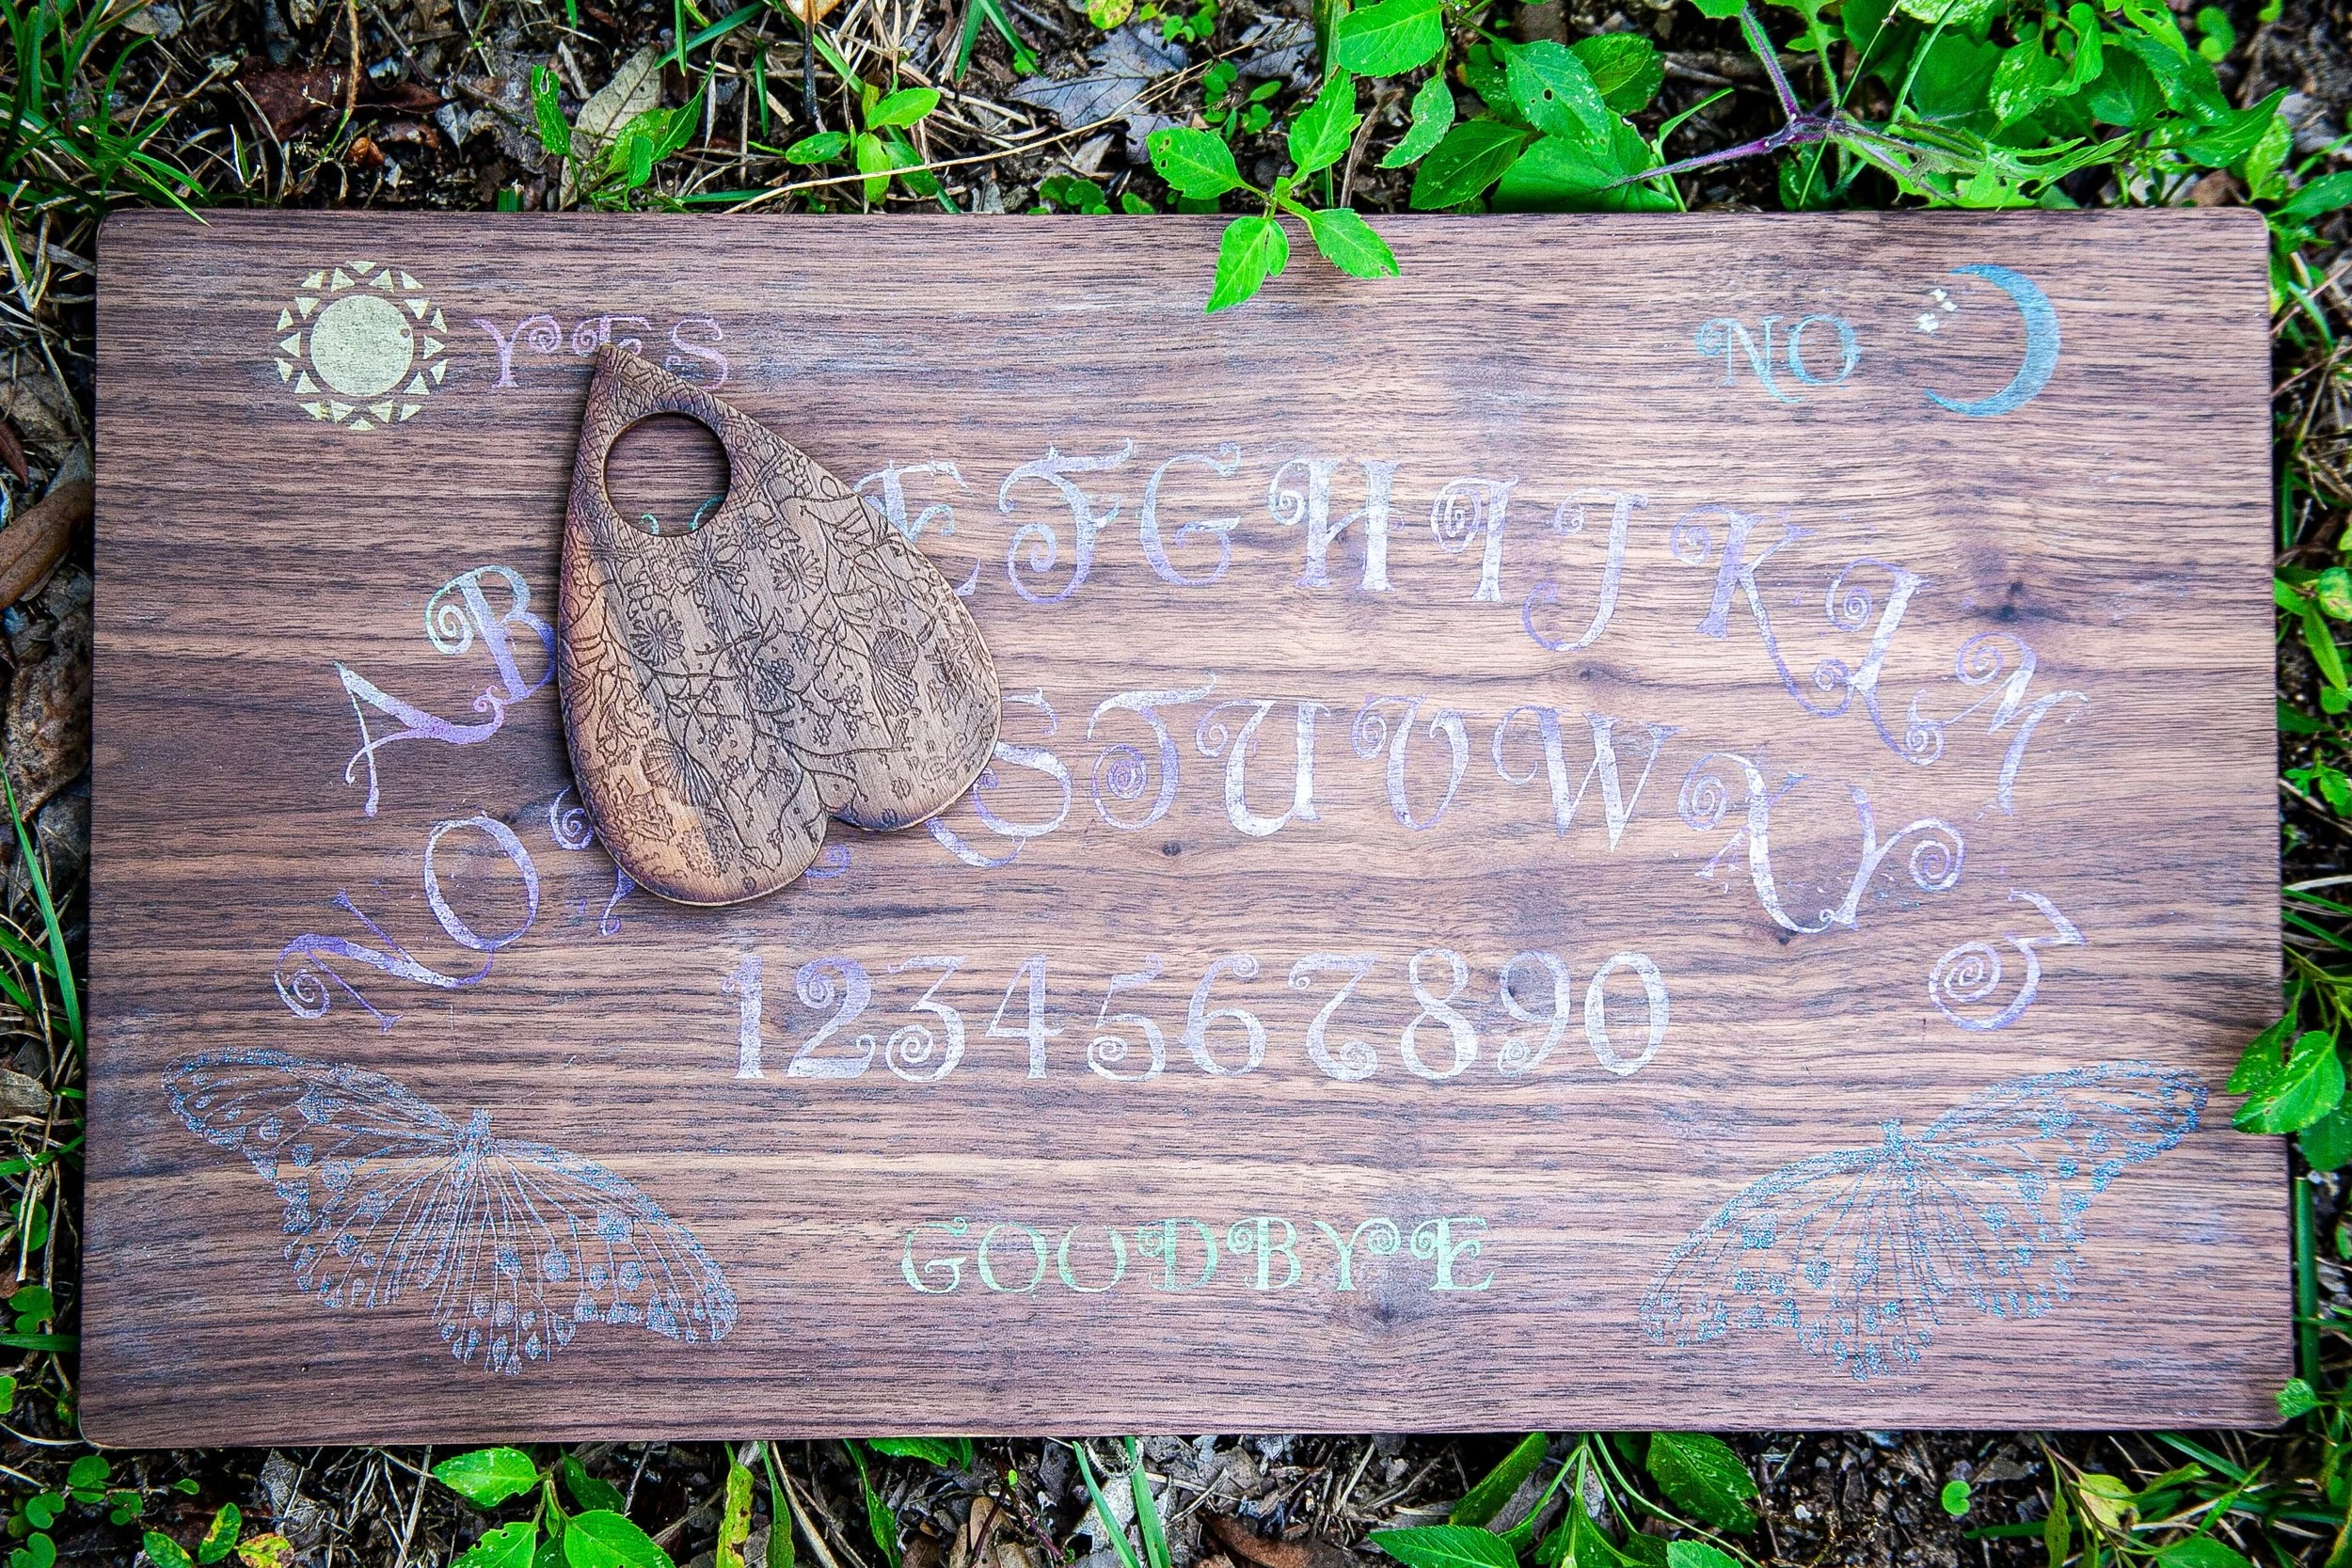 YES NO
A B E F G H I J K L M
N O S T U V W X Y Z
1 2 3 4 5 6 7 8 9 0
GOODBYE